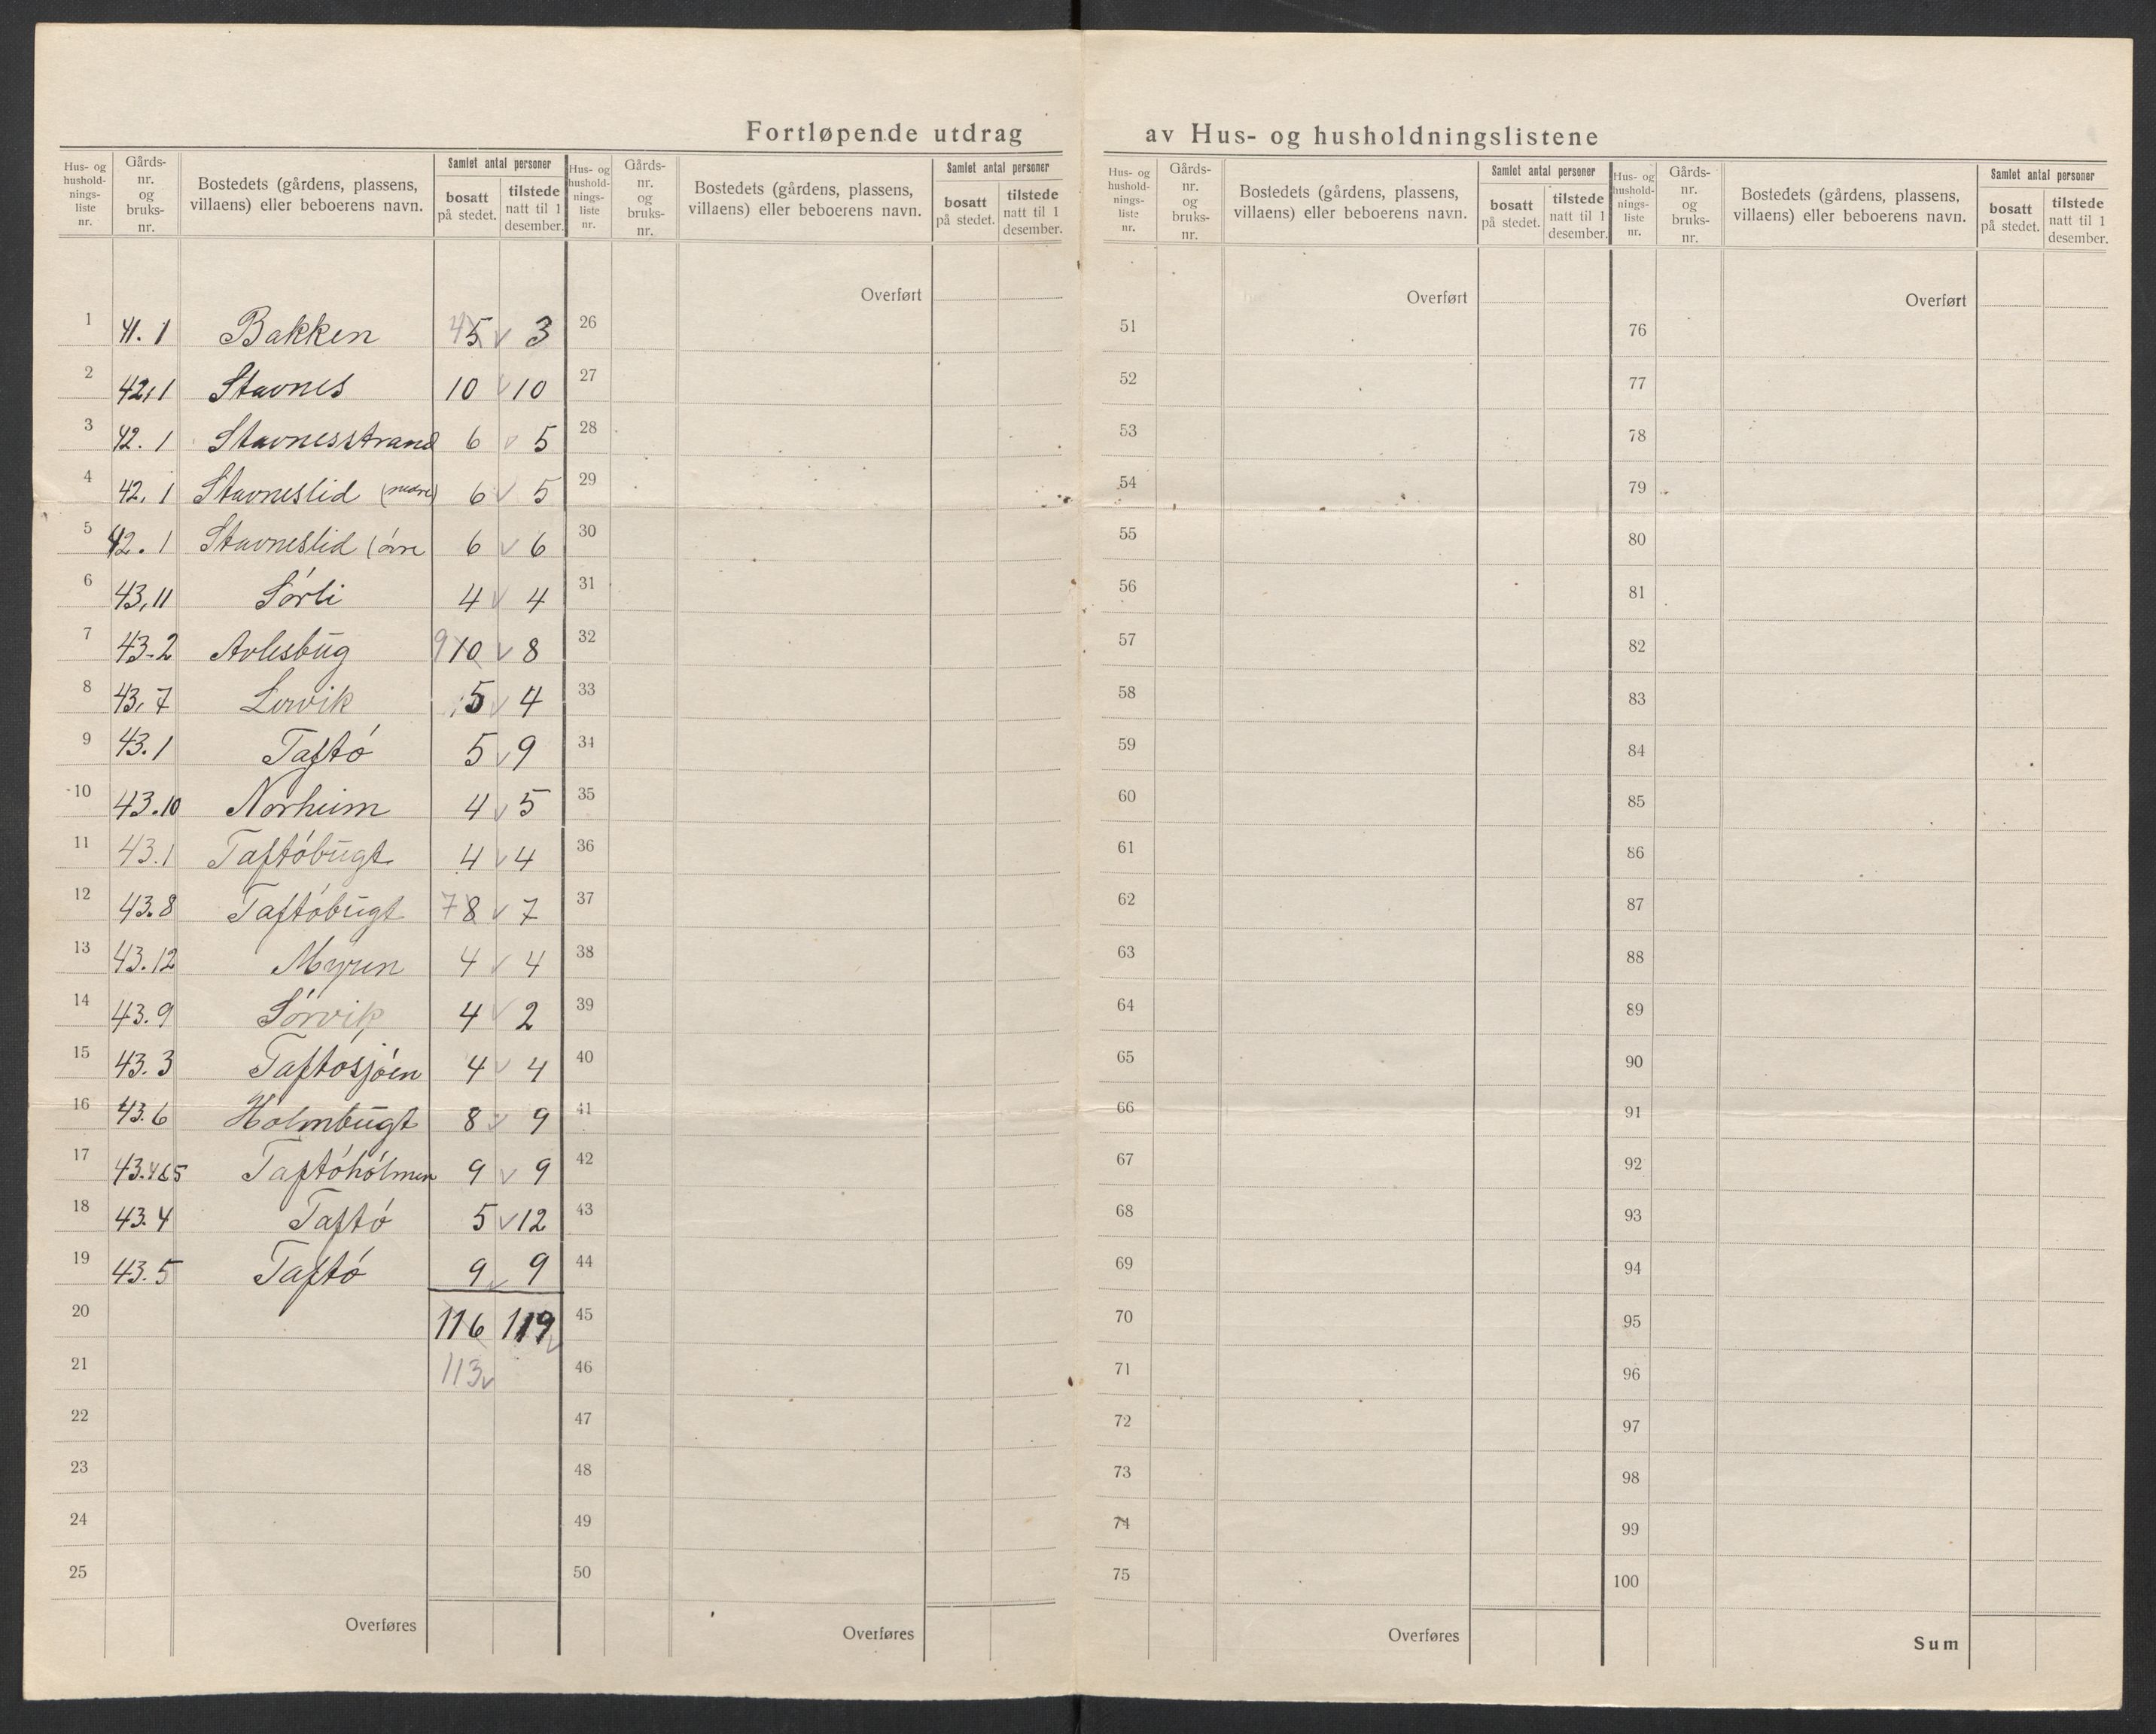 Fortløpende utdrag av Hus- og husholdningslistene
Hus- og husholdnings-liste nr. Gårds-nr. og bruks-nr. Bostedets (gårdens, plassens, villaens) eller beboerens navn. Samlet antal personer bosatt på stedet. tilstede natt til 1 desember.
Hus- og husholdnings-liste nr. Gårds-nr. og bruks-nr. Bostedets (gårdens, plassens, villaens) eller beboerens navn. Samlet antal personer bosatt på stedet. tilstede natt til 1 desember.
Hus- og husholdnings-liste nr. Gårds-nr. og bruks-nr. Bostedets (gårdens, plassens, villaens) eller beboerens navn. Samlet antal personer bosatt på stedet. tilstede natt til 1 desember.
Hus- og husholdnings-liste nr. Gårds-nr. og bruks-nr. Bostedets (gårdens, plassens, villaens) eller beboerens navn. Samlet antal personer bosatt på stedet. tilstede natt til 1 desember.
1 41.1 Bakken 4 5 v 3
2 42,1 Stavnes 10 v 10
3 42.1 Stavnesstrand 6 v 5
4 42.1 Stavneslid (nedre) 6 v 5
5 42.1 Stavneslid (övre 6 v 6
6 43,11 Sórli 4 v 4
7 43-2 Avlesbug 9 10 v 8
8 43,7 Lervik 5 v 4
9 43.1 Taftó 5 v 9
10 43.10 Norheim 4 v 5
11 43.1 Taftóbugt 4 v 4
12 43.8 Taftóbugt 7 8 v 7
13 43.12 Myren 4 v 4
14 43.9 Sórvik 4 v 2
15 43.3 Taftosjóen 4 v 4
16 43.6 Holmbugt 8 v 9
17 43.4&5 Taftóhólmen 9 v 9
18 43.4 Taftó 5 v 12
19 43.5 Taftó 9 v 9
20 116 119 v
21 113 v
22
23
24
25
Overføres
Overført
26
27
28
29
30
31
32
33
34
35
36
37
38
39
40
41
42
43
44
45
46
47
48
49
50
Overføres
Overført
51
52
53
54
55
56
57
58
59
60
61
62
63
64
65
66
67
68
69
70
71
72
73
74
75
Overføres
Overført
76
77
78
79
80
81
82
83
84
85
86
87
88
89
90
91
92
93
94
95
96
97
98
99
100
Sum